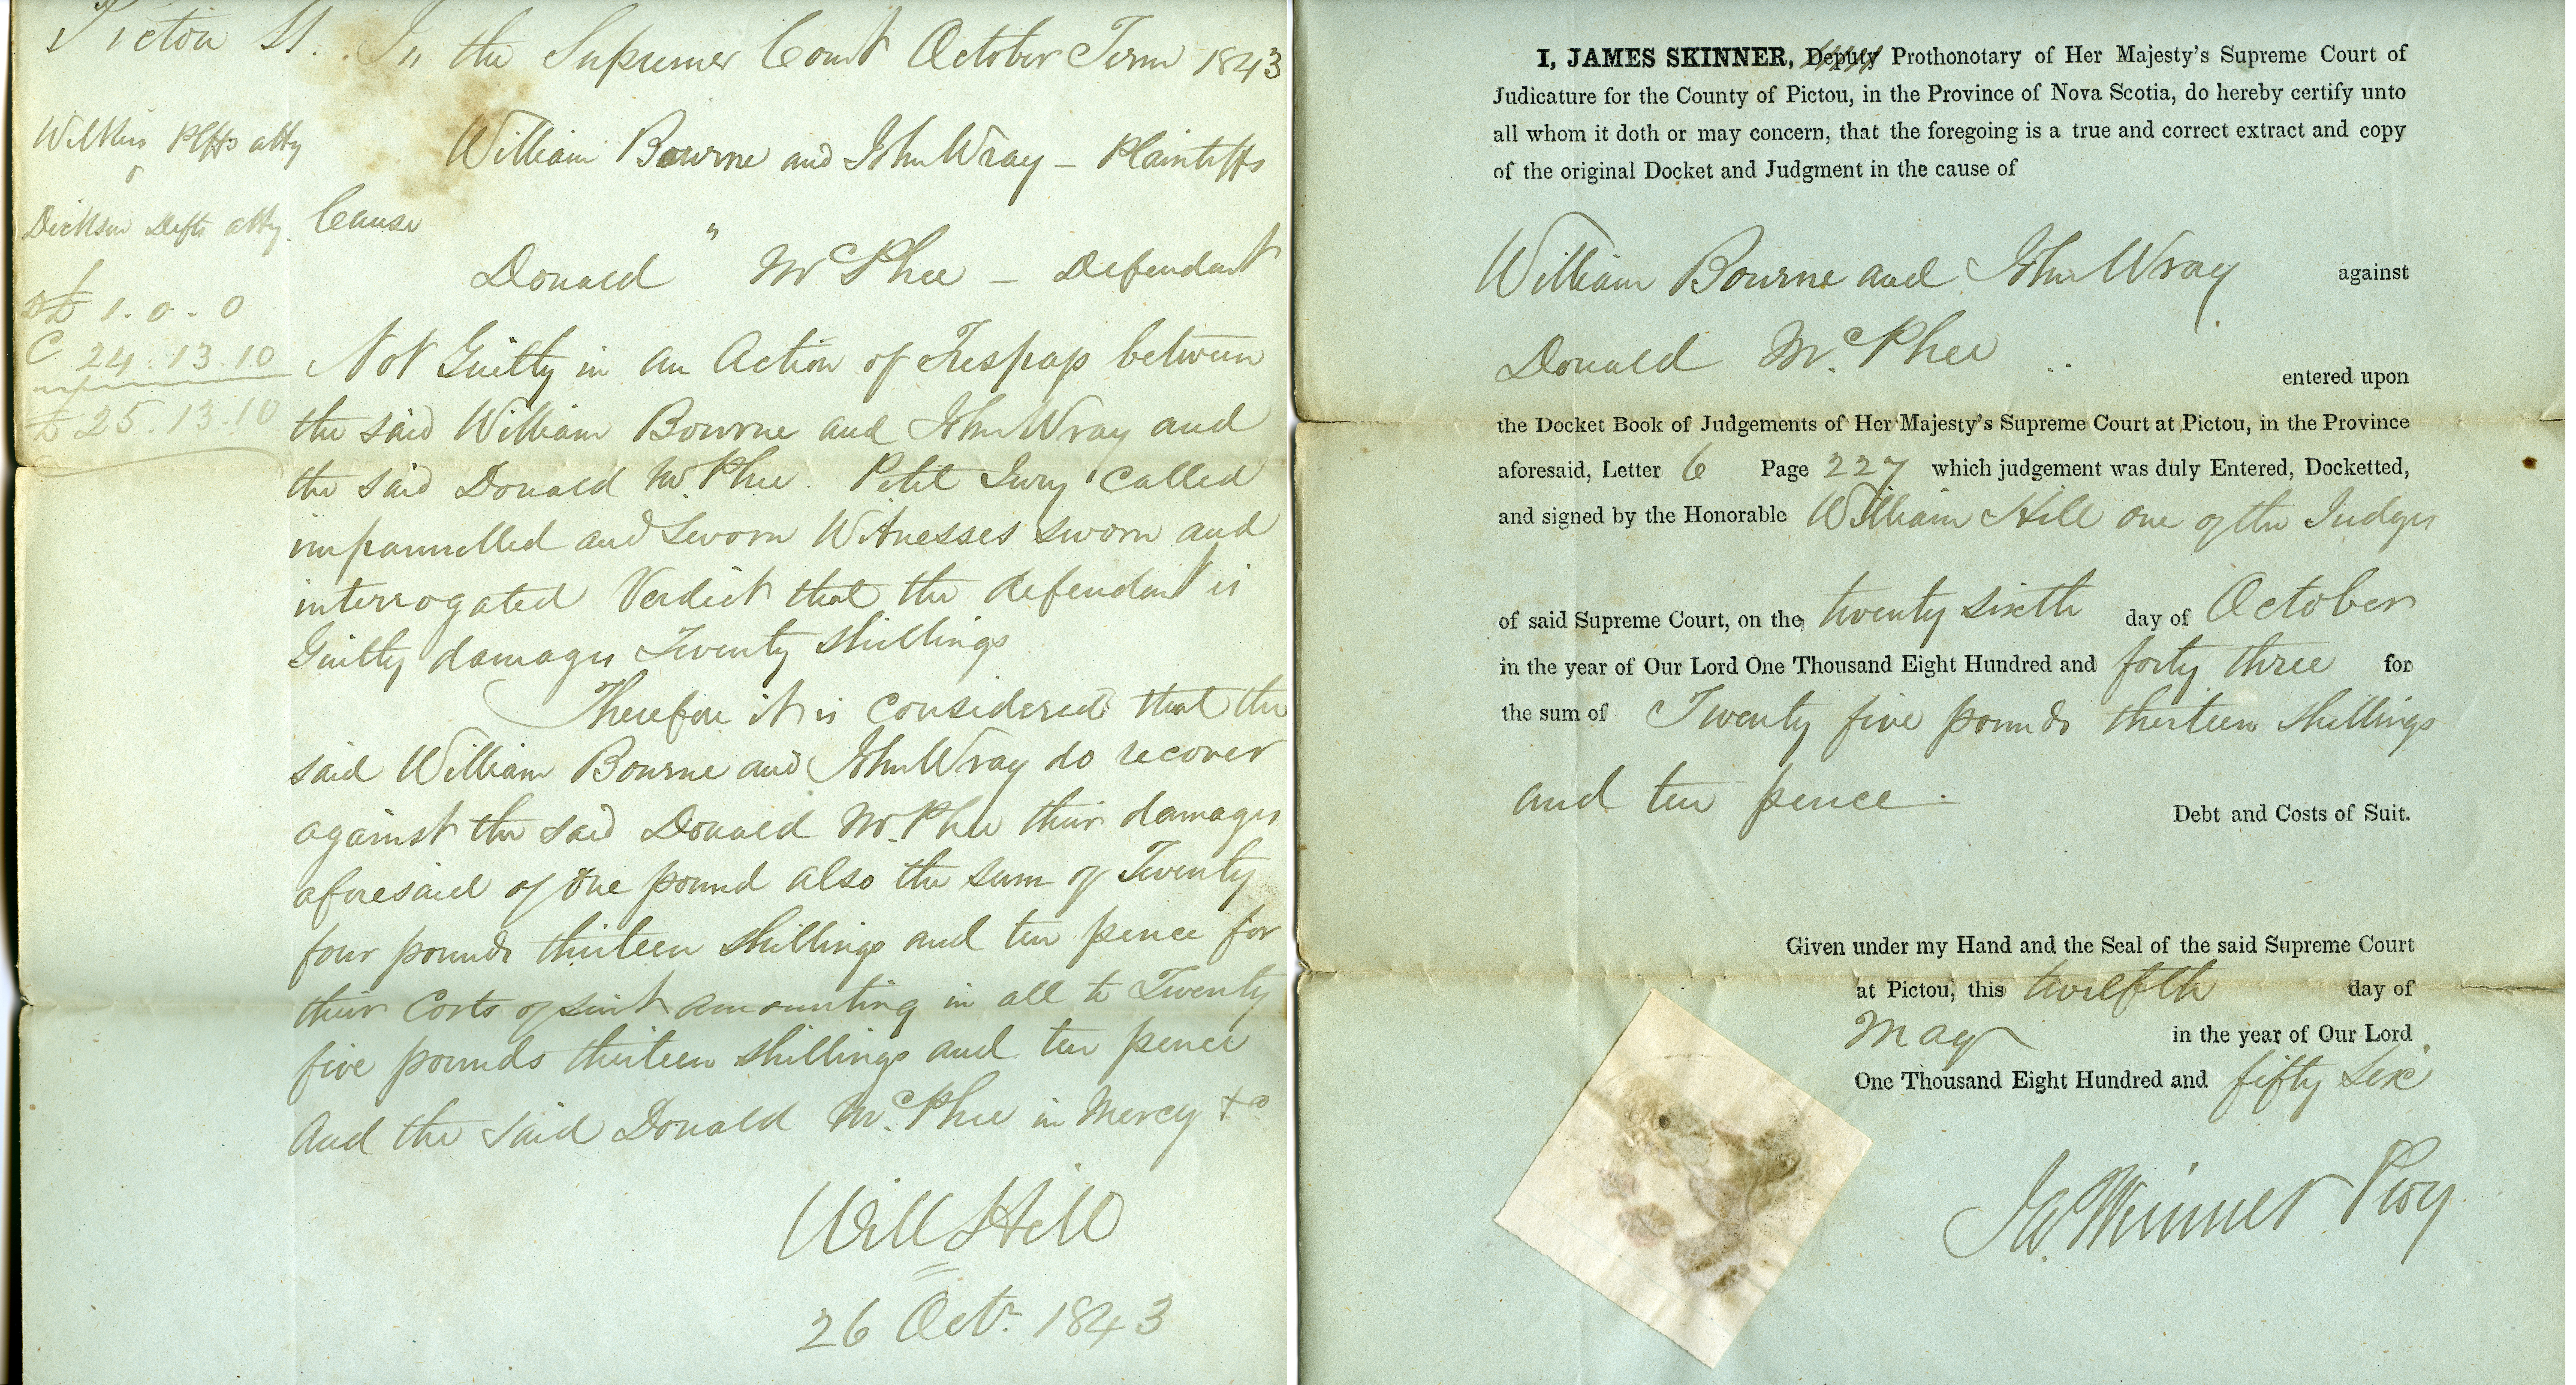 Pictou SS. In the Supreme Court October Term 1843
Wilkins Plffs atty
William Bourne and John Wray – Plaintiffs
Dickson Defts atty.
Cause "
Donald " McPhee – Defendant
Dt 1. 0. 0
C 24. 13. 10
£ 25. 13. 10
Not Guilty in an Action of Trespass between
the said William Bourne and John Wray and
the said Donald McPhee. Petit Jury called
impannelled and sworn Witnesses sworn and
interrogated Verdict that the defendant is
Guilty damages Twenty shillings
Therefore it is considered that the
said William Bourne and John Wray do recover
against the said Donald McPhee their damages
aforesaid of One pound also the sum of Twenty
four pounds thirteen shillings and ten pence for
their Costs of suit amounting in all to Twenty
five pounds thirteen shillings and ten pence
And the said Donald McPhee in Mercy &c
Will Hill
26 Octr. 1843
I, JAMES SKINNER, Deputy Prothonotary of Her Majesty's Supreme Court of
Judicature for the County of Pictou, in the Province of Nova Scotia, do hereby certify unto
all whom it doth or may concern, that the foregoing is a true and correct extract and copy
of the original Docket and Judgment in the cause of
William Bourne and John Wray against
Donald McPhee .. entered upon
the Docket Book of Judgements of Her Majesty's Supreme Court at Pictou, in the Province
aforesaid, Letter 6 Page 227 which judgement was duly Entered, Docketted,
and signed by the Honorable William Hill one of the Judges
of said Supreme Court, on the twenty sixth day of October
in the year of Our Lord One Thousand Eight Hundred and forty three for
the sum of Twenty five pounds thirteen shillings
and ten pence.
Debt and Costs of Suit.
Given under my Hand and the Seal of the said Supreme Court
at Pictou, this twelfth day of
May in the year of Our Lord
One Thousand Eight Hundred and fifty six
Jas. Skinner Proy